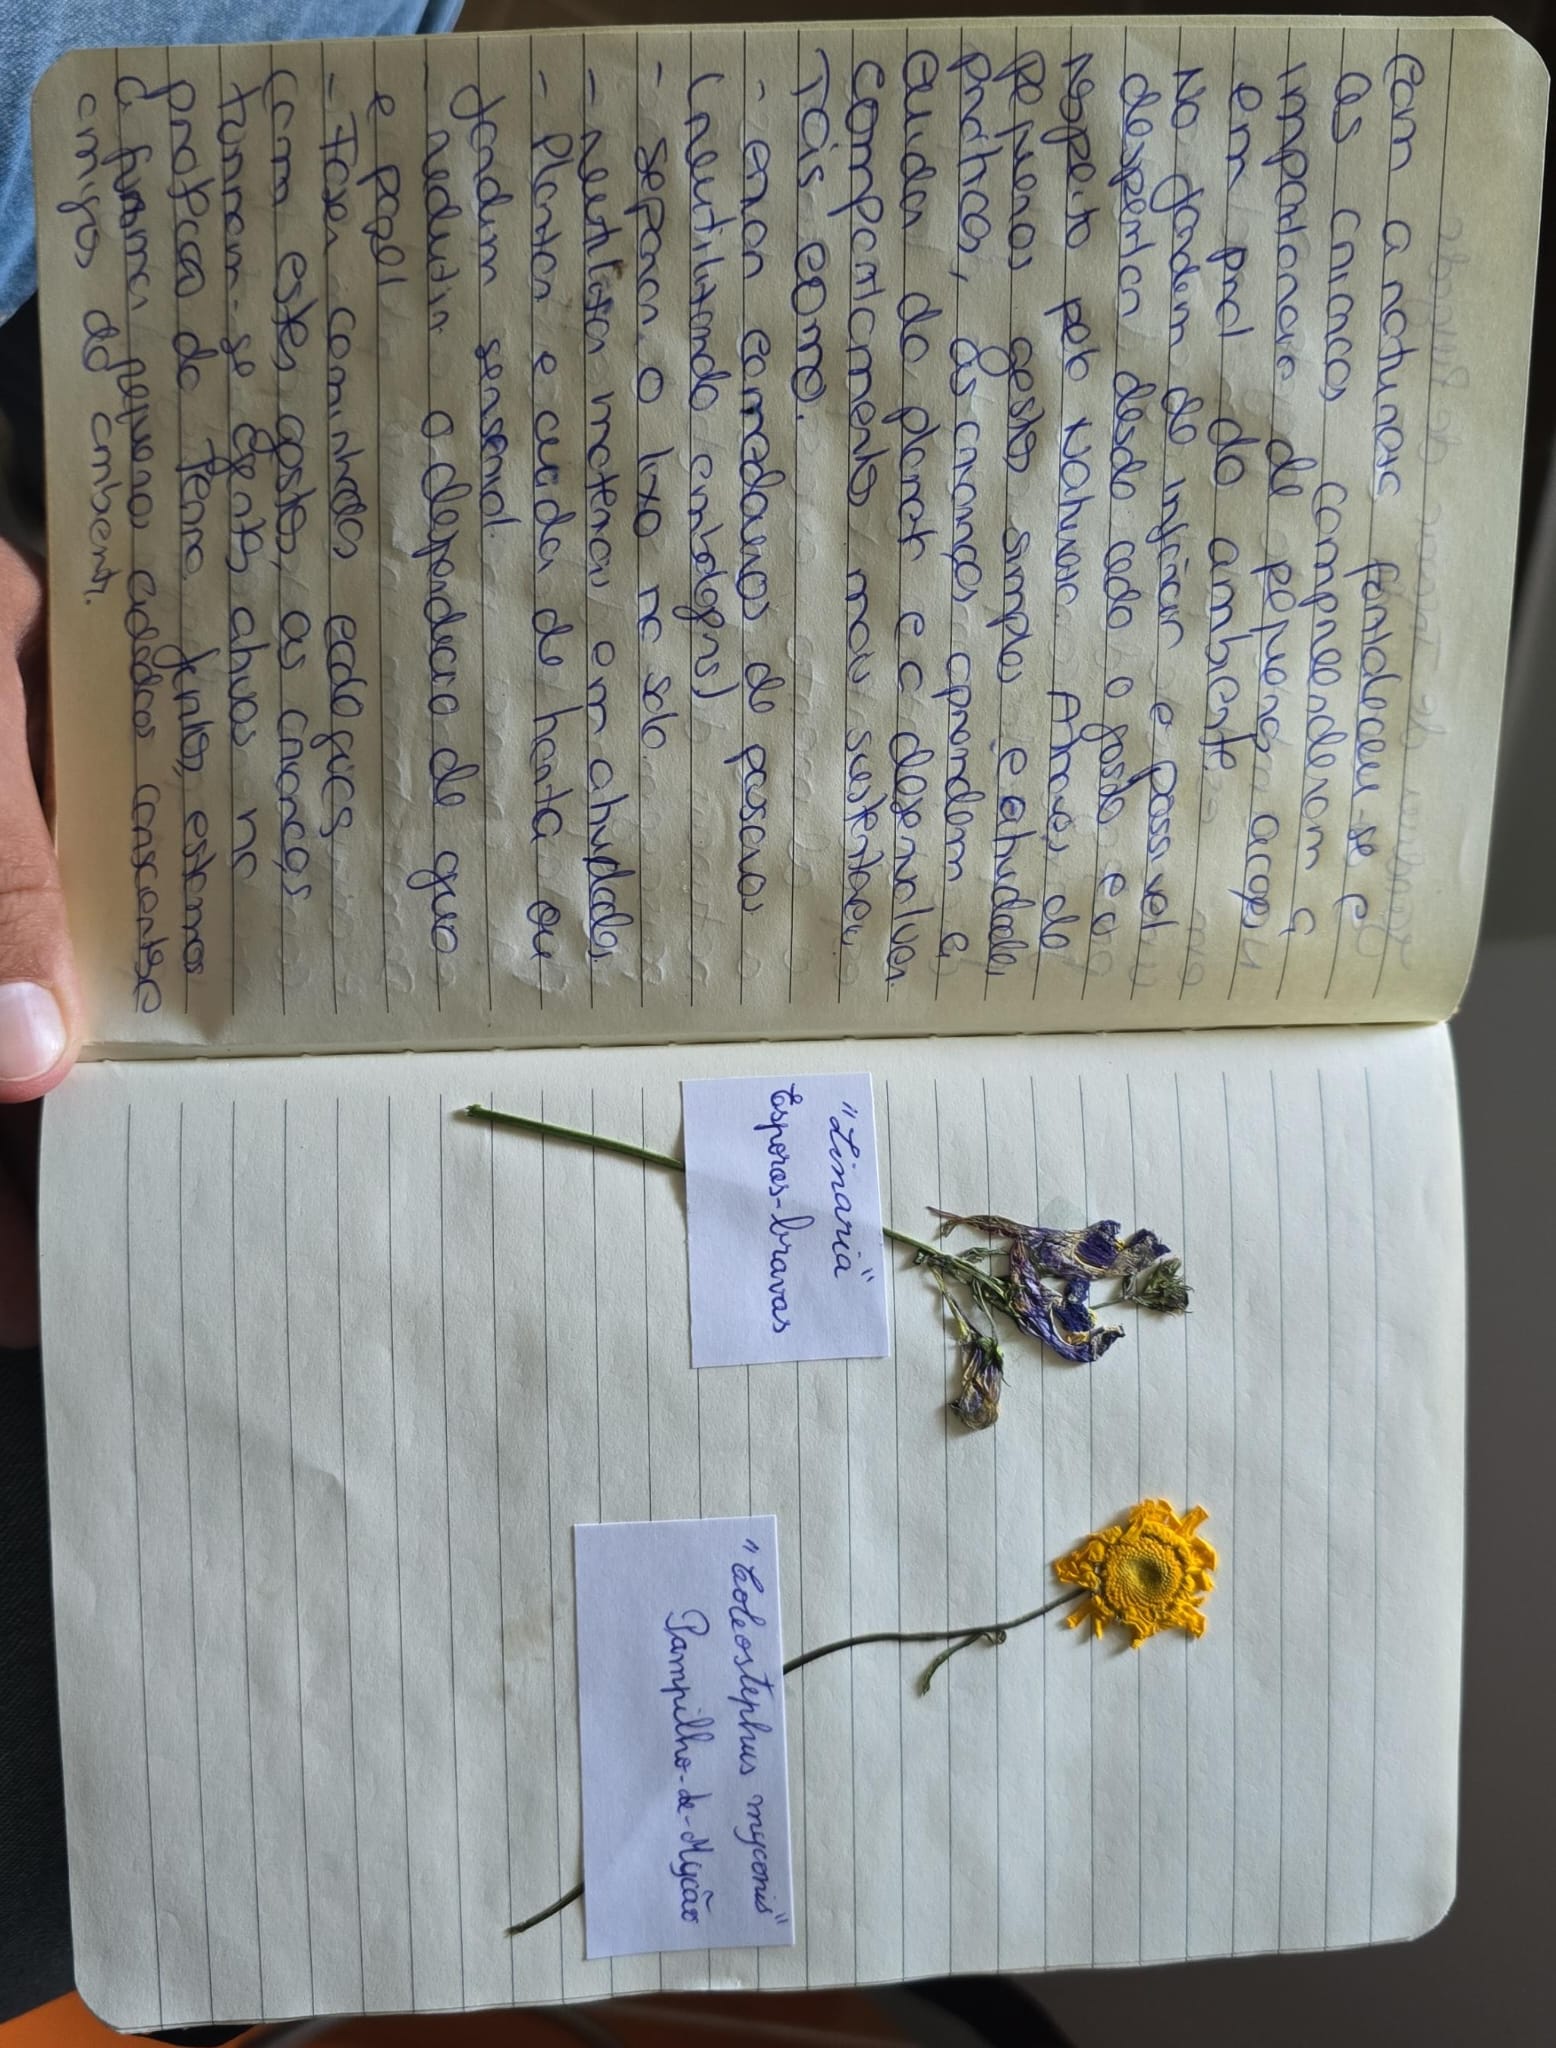 com a natureza fortaleceu-se e
as crianças compreenderam a
importancia de pequenas acçoes
em prol do ambiente.
No Jardim de infância e possivel
despertar desde cedo o gosto e o
respeito pela Natureza. Através de
pequenos gestos simples e atividades
práticas, as crianças aprendem a
cuidar do planeta e a desenvolver
comportamentos mais sustentáveis
Tais como.
- criar comedouros de passaros
(reutilizando embalagens)
- separar o lixo na sala
- reutilizar materiais em atividades
- Plantar e cuidar de horta ou
Jardim sensorial.
- reduzir o desperdicio de água
e papel
- Fazer caminhadas ecologicas
Com estes gestos, as crianças
tornam-se agentes ativos na
proteçao da Terra. Juntos, estamos
a formar pequenos cidadãos conscientes e
amigos do ambiente.
"Linaria"
Esporas-bravas
"Coleostephus myconis"
Pampilho-de-Micão